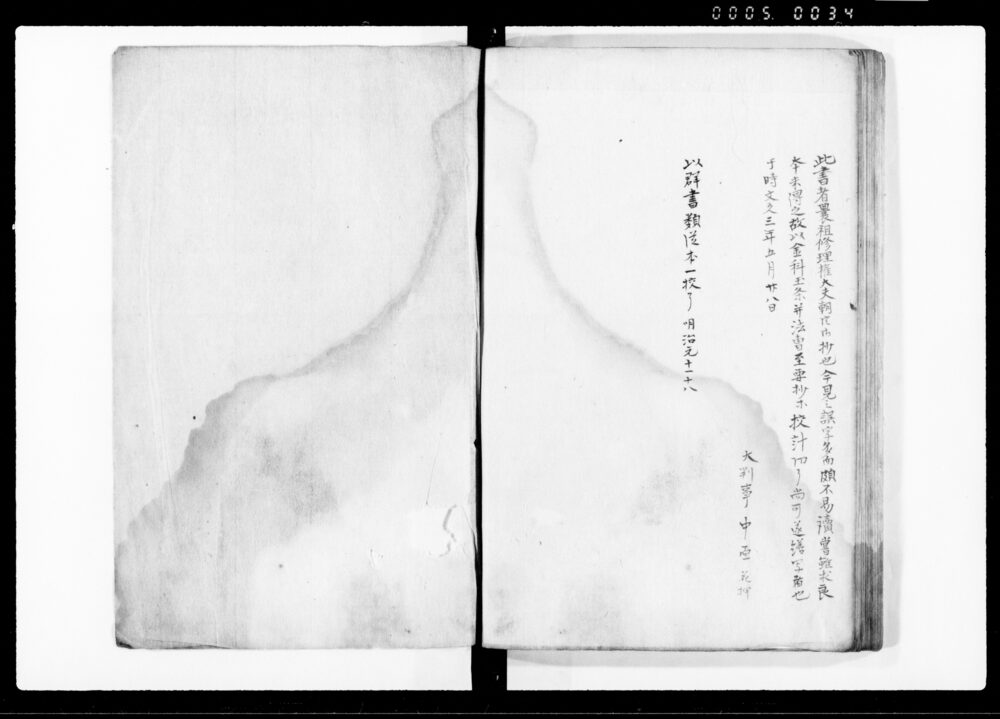 0005 0034
此書者曩祖修理権大夫朝臣所抄也今見之誤字多而頗不易讀嘗雖求良
本未得之故以金科玉条并法曹至要抄等校計了尚可遂繕写者也
于時文久三年五月廿八日
大判事中原 花押
以群書類従本一挍了 明治元十一十八